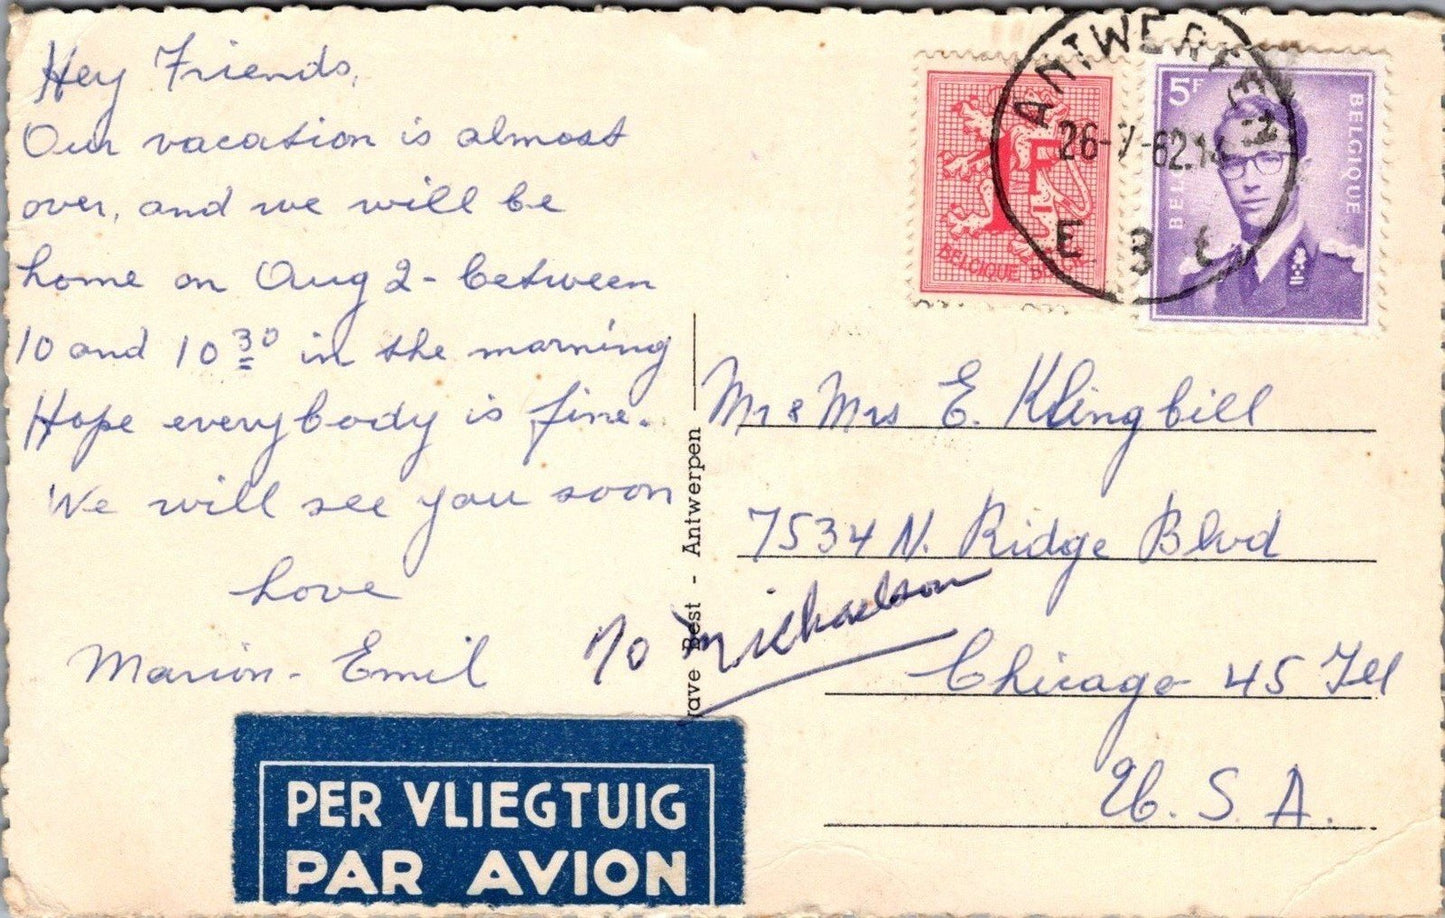 Hey Friends,
Our vacation is almost
over, and we will be
home on Aug 2 - between
10 and 10 30 in the morning
Hope everybody is fine.
We will see you soon
Love
Marion - Emil
PER VLIEGTUIG
PAR AVION
Best - Antwerpen
ANTWERPEN
26- -62
E 3 E
1F
BELGIQUE BELGIE
5F
BELGIQUE
Mr & Mrs E. Klingbill
7534 N. Ridge Blvd
% Michaelson
Chicago 45 Ill
U. S. A.